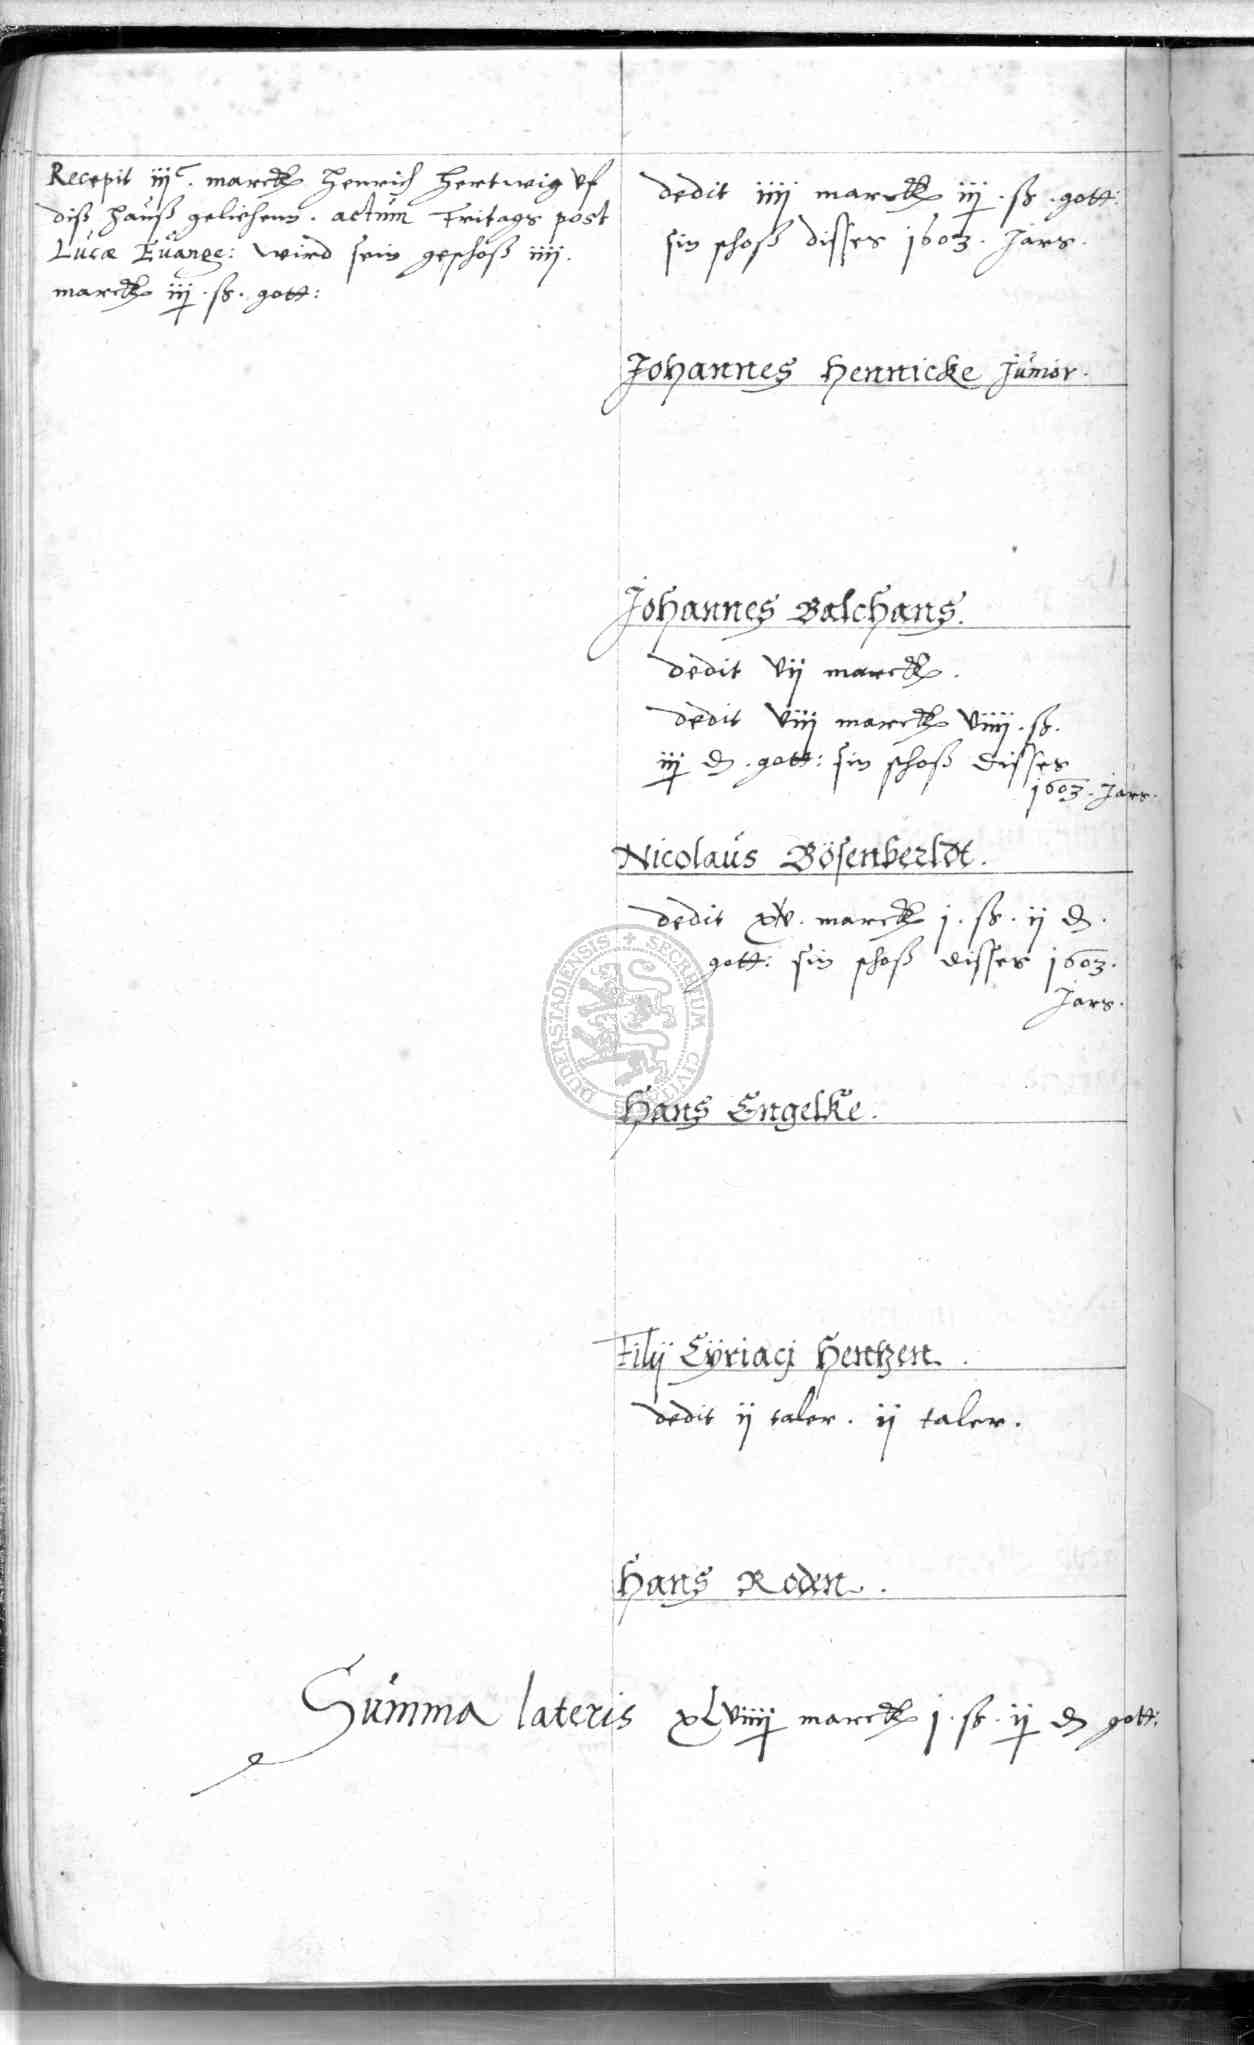 Recepit iijc. marck Henrich Hertwig vf
diß hauß geliehenn. actum Fritags post
Lucæ Euange: wird sein geschoß iiij.
marck iij .ß. gott:
dedit iiij marck iij .ß. gott:
sin schoß disses 1603. Jars.
Johannes Hennicke Junior.
Johannes Balchans.
dedit vij marck.
dedit viij marck viiij .ß.
iij ₰. gott: sin schoß disses
1603. Jars.
Nicolaus Bösenberldt.
dedit xv. marck j. ß. ij ₰.
gott: sin schoß disses 1603.
Jars.
DUDERSTADIENSIS + SECRETUM CIVITATIS
Hans Engelke.
Filij Cÿriacj Hentzen.
dedit ij taler. ij taler.
Hans Roden.
Summa lateris xLviiij marck j. ß. ij ₰ gott: